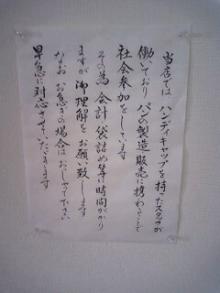 当店では ハンディキャップを持ったスタッフが
働いており パンの製造販売に携わることで
社会参加をしています
その為 会計 袋詰め等に時間がかかり
ますが 御理解を お願い致します
なお お急ぎの場合は おしゃって下さい
早急に対応させていただきます